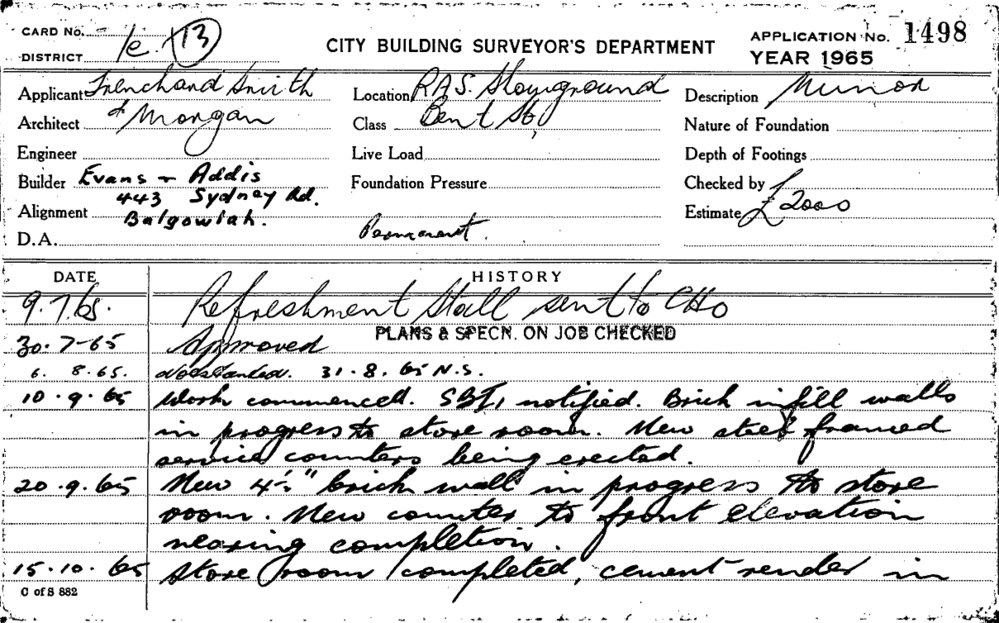 CARD No.
DISTRICT 1e. 13
CITY BUILDING SURVEYOR'S DEPARTMENT
APPLICATION No. 1498
YEAR 1965
Applicant Trenchard Smith
Architect & Morgan
Engineer
Builder Evans & Addis
443 Sydney Rd.
Alignment Balgowlah.
D.A.
Location RAS. Showground
Class Bent St,
Live Load
Foundation Pressure
Permanent.
Description Minor
Nature of Foundation
Depth of Footings
Checked by
Estimate £2000
DATE HISTORY
9.7.65. Refreshment Stall sent to CHO
PLANS & SPECN. ON JOB CHECKED
30-7-65 Approved
6. 8.65. Not started. 31.8.65 N.S.
10.9.65 Work commenced. SBI, notified. Brick infill walls
in progress to store room. New steel framed
service counters being erected.
20.9.65 New 4½" brick wall in progress to store
room. New counter to front elevation
nearing completion.
15.10.65 Store room completed, cement render in
C of S 882